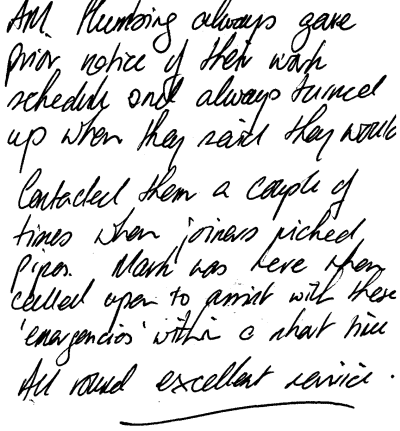 AM. Plumbing always gave
prior notice of their work
schedule and always turned
up when they said they would
Contacted them a couple of
times when joiners nicked
pipes. Mark was here when
called upon to assist with these
'emergencies' within a short time
All round excellent service.